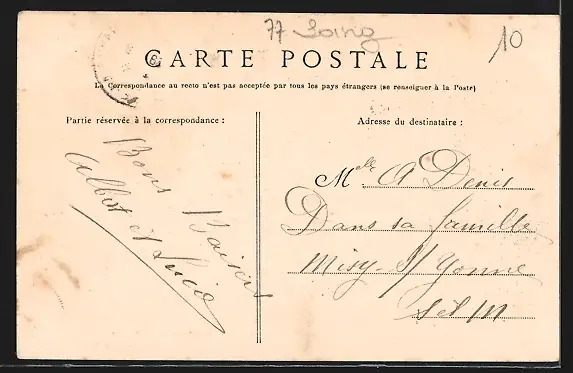 77 Soing
10
CARTE POSTALE
La Correspondance au recto n'est pas acceptée par tous les pays étrangers (se renseigner à la Poste)
Partie réservée à la correspondance :
Bons Baisers
Albert et Lucie
Adresse du destinataire :
Melle A Denis
Dans sa famille
Misy-S/Yonne
S et M